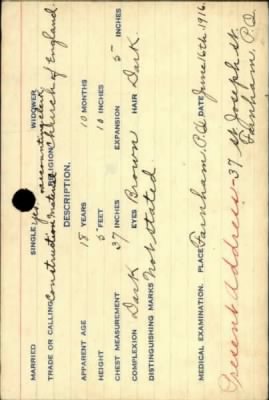 MARRIED SINGLE yes WIDOWER
TRADE OR CALLING Construction RELIGION Church of England
DESCRIPTION.
APPARENT AGE 18 YEARS 10 MONTHS
HEIGHT 5 FEET 10 INCHES
CHEST MEASUREMENT 37 INCHES EXPANSION 5 INCHES
COMPLEXION Dark EYES Brown HAIR Dark.
DISTINGUISHING MARKS Not stated.
MEDICAL EXAMINATION. PLACE Farnham, P.Q. DATE June 16th 1916.
Present Address - 37 St Joseph St.
Farnham, P.Q.